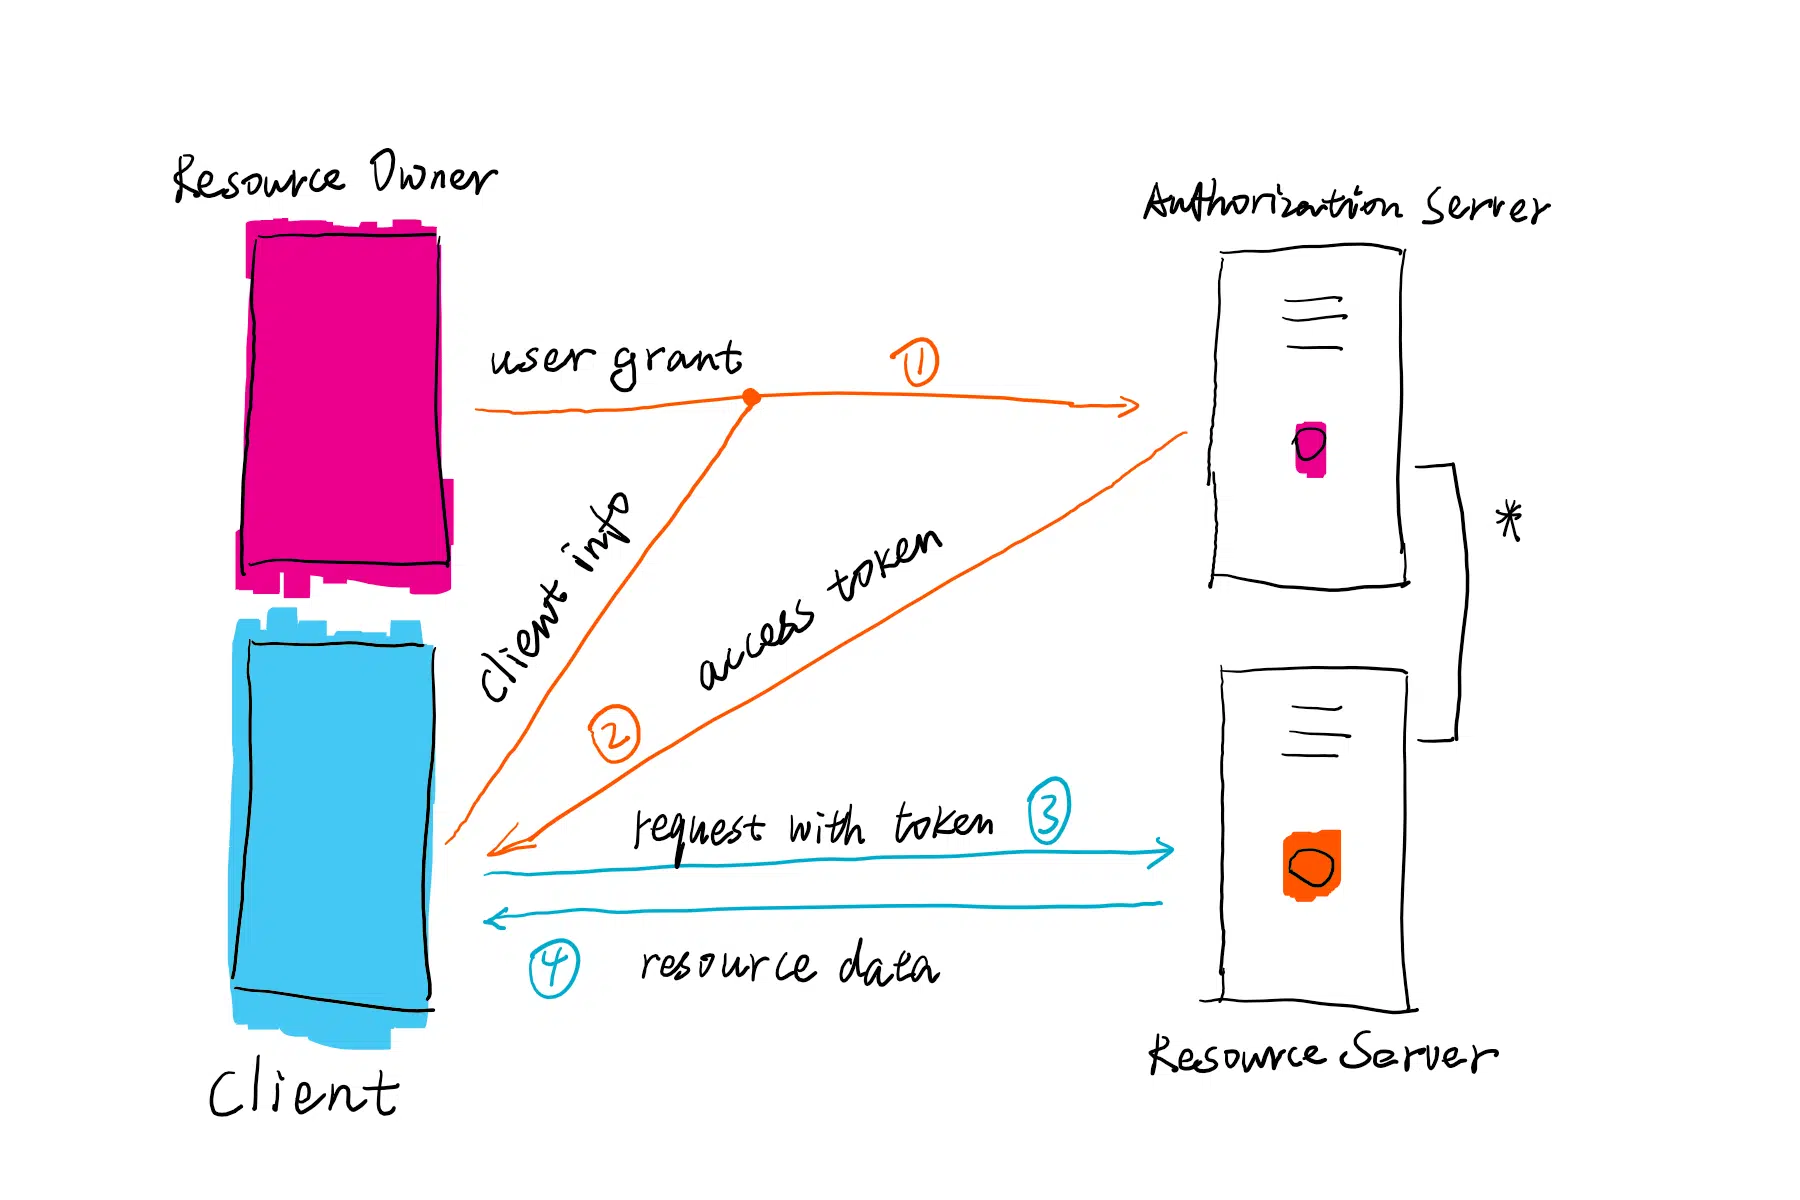 Resource Owner
Authorization Server
user grant
①
client info
access token
*
②
request with token ③
④ resource data
Resource Server
Client